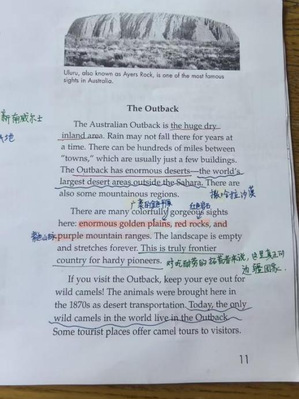 Uluru, also known as Ayers Rock, is one of the most famous
sights in Australia.
新南威尔士
The Outback
The Australian Outback is the huge dry
inland area. Rain may not fall there for years at
a time. There can be hundreds of miles between
"towns," which are usually just a few buildings.
The Outback has enormous deserts—the world's
largest desert areas outside the Sahara. There are
also some mountainous regions.
撒哈拉沙漠
There are many colorfully gorgeous sights
here: enormous golden plains, red rocks, and
purple mountain ranges. The landscape is empty
and stretches forever. This is truly frontier
country for hardy pioneers.
If you visit the Outback, keep your eye out for
wild camels! The animals were brought here in
the 1870s as desert transportation. Today, the only
wild camels in the world live in the Outback.
Some tourist places offer camel tours to visitors.
11